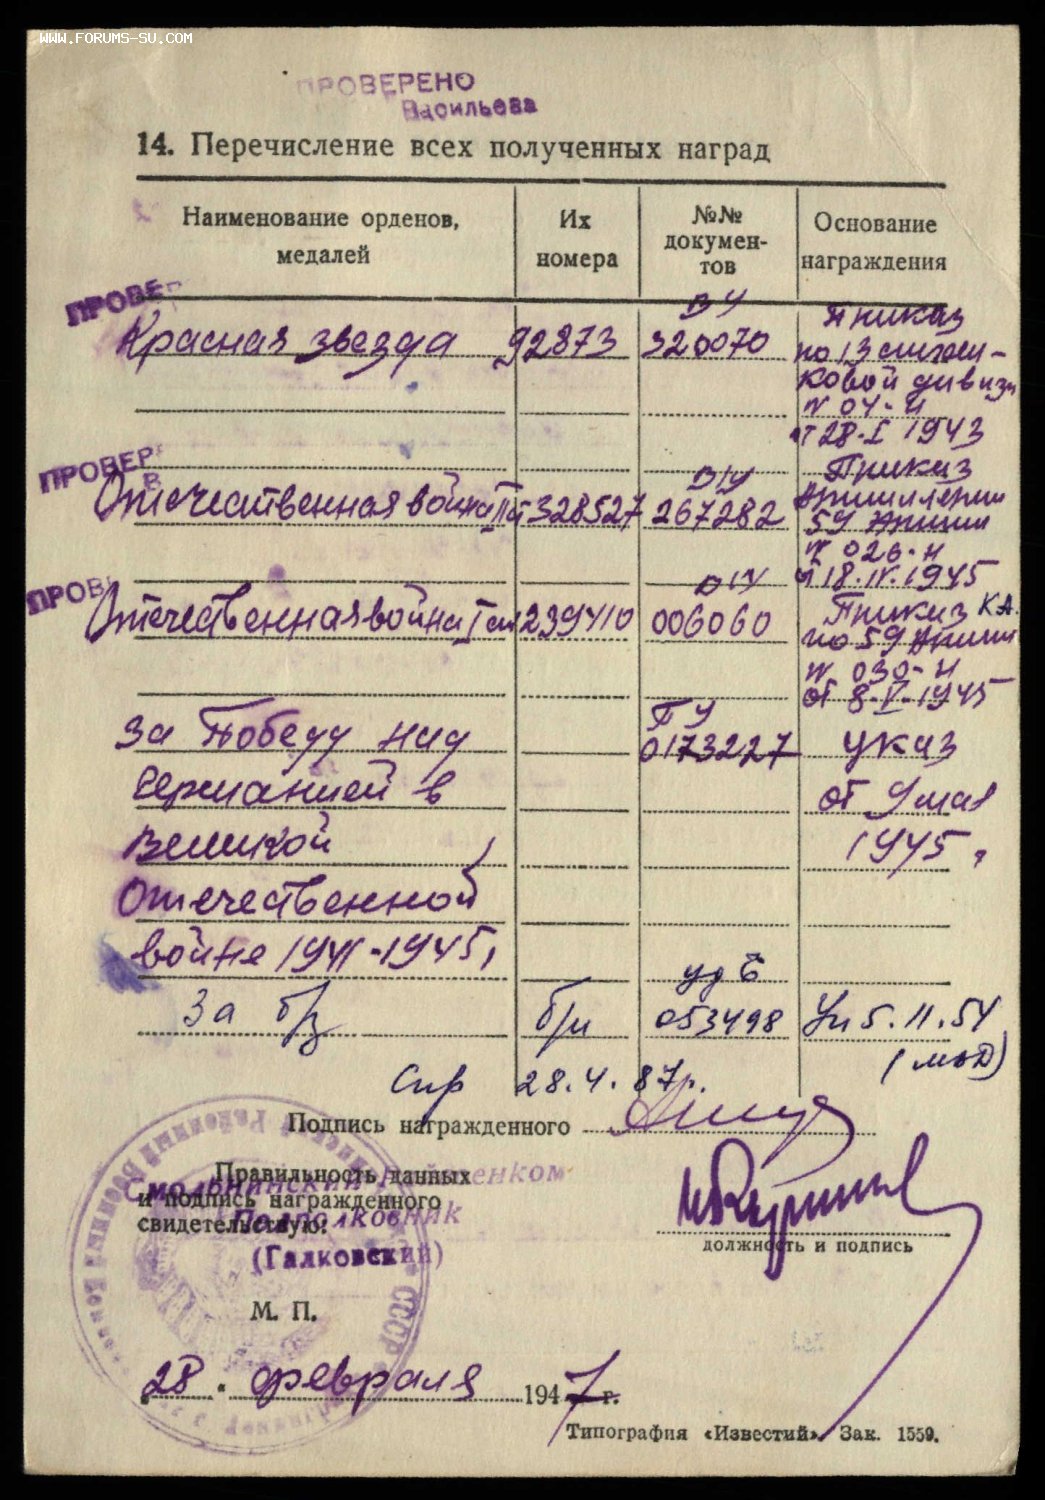 WWW.FORUMS-SU.COM
ПРОВЕРЕНО
Васильева
14. Перечисление всех полученных наград
Наименование орденов, медалей
Их номера
№№ документов
Основание награждения
ПРОВЕР
Красная звезда 92873 ВУ 320070
Приказ
по 13 стрел-
ковой дивизи
N 04-н
от 28.I 1943
ПРОВЕР
В
Отечественная война II ст 328527 267282
Приказ
Артиллерии
59 Армии
N 026-н
от 18.IV.1945
ПРОВ
Отечественная война I ст 239410 006060
Приказ КА.
по 59 Армии
N 030-н
от 8-V-1945
За Победу над ПУ 0173227 указ
Германией в от 9 мая
Великой 1945,
Отечественной
войне 1941-1945,
уд Б
За б/з б/н 053498 Ук 5.11.54
(МВД)
28.4.87г.
Подпись награжденного
Правильность данных
и подпись награжденного
свидетельствую:
Смольнинский Райвоенком
Подполковник
(Галковский)
должность и подпись
М. П.
28. февраля 1947 г.
Типография «Известий». Зак. 1559.
СССР